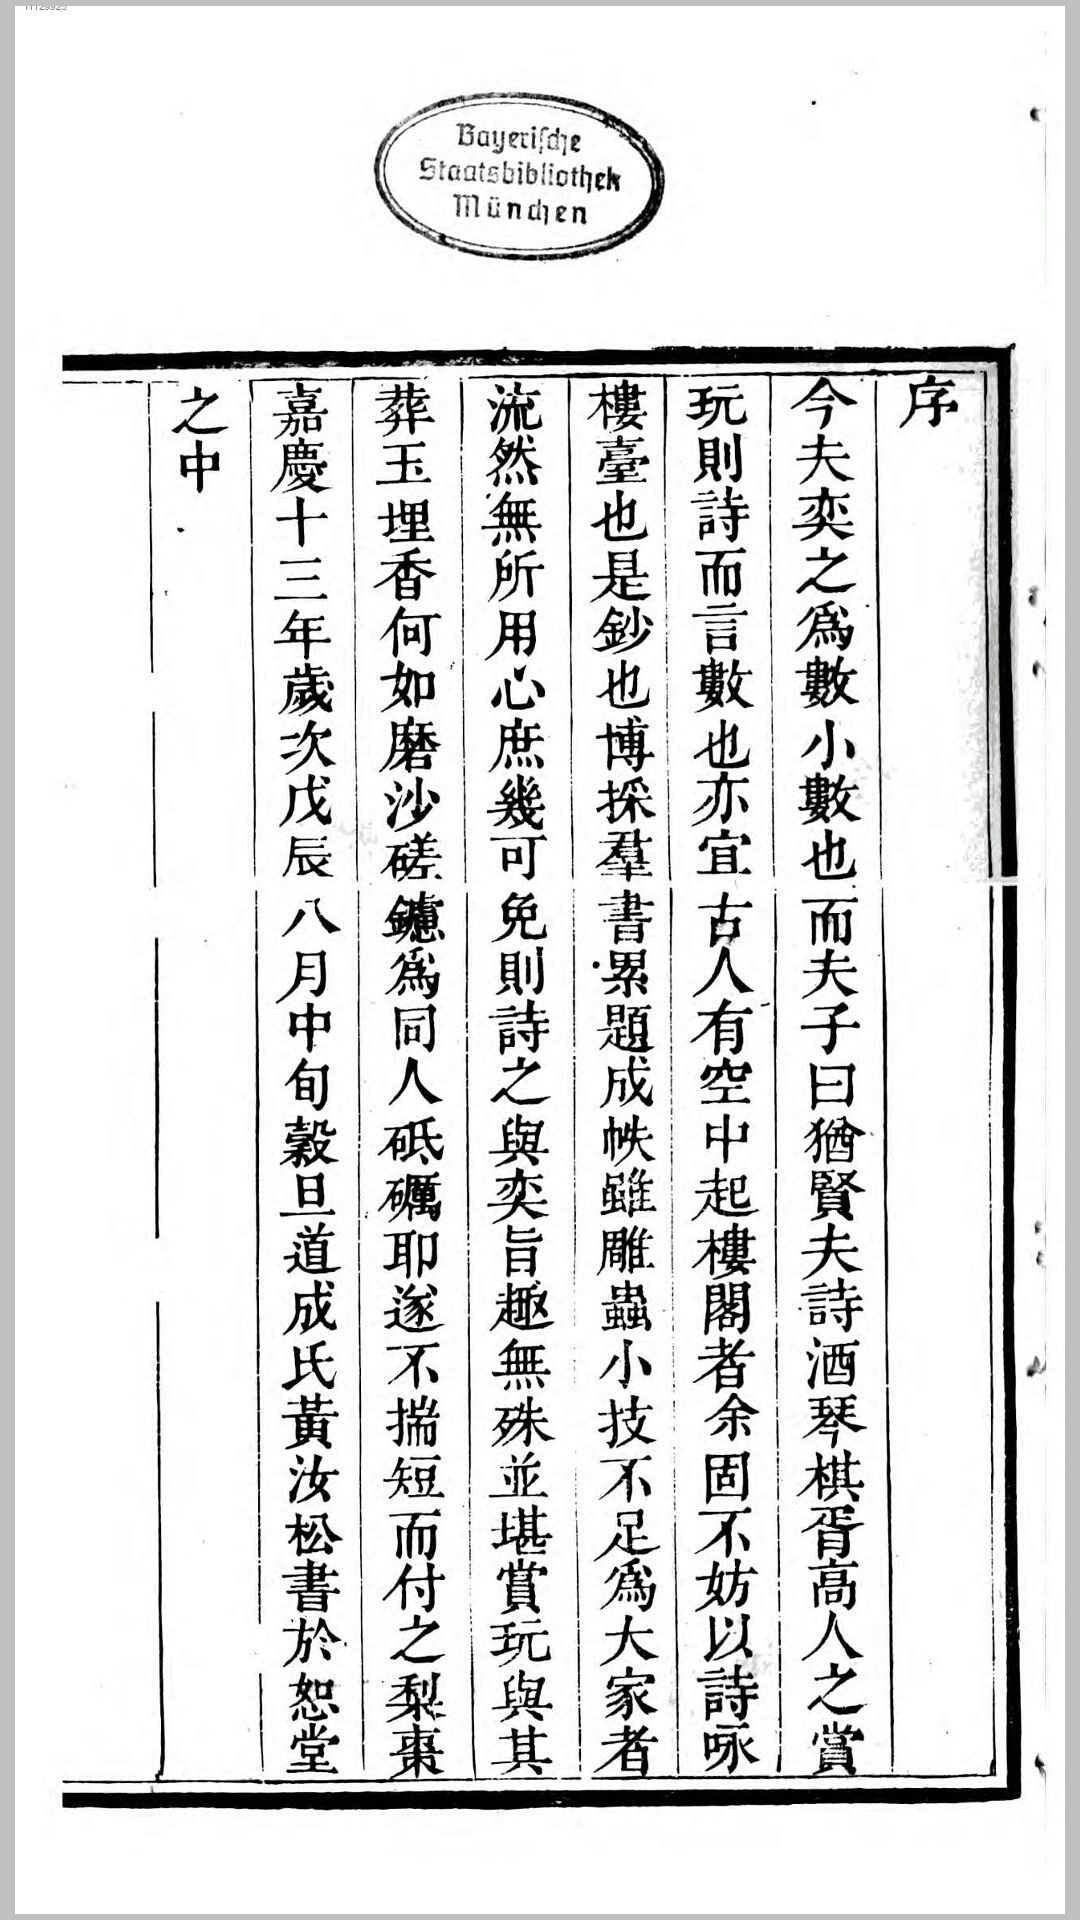 11129925
Bayerische
Staatsbibliothek
München
序
今夫奕之爲數小數也而夫子曰猶賢夫詩酒琴棋胥高人之賞
玩則詩而言數也亦宜古人有空中起樓閣者余固不妨以詩咏
樓臺也是鈔也博採羣書累題成帙雖雕蟲小技不足爲大家者
流然無所用心庶幾可免則詩之與奕旨趣無殊並堪賞玩與其
葬玉埋香何如磨沙磋鑢爲同人砥礪耶遂不揣短而付之梨棗
嘉慶十三年歲次戊辰八月中旬穀旦道成氏黃汝松書於恕堂
之中